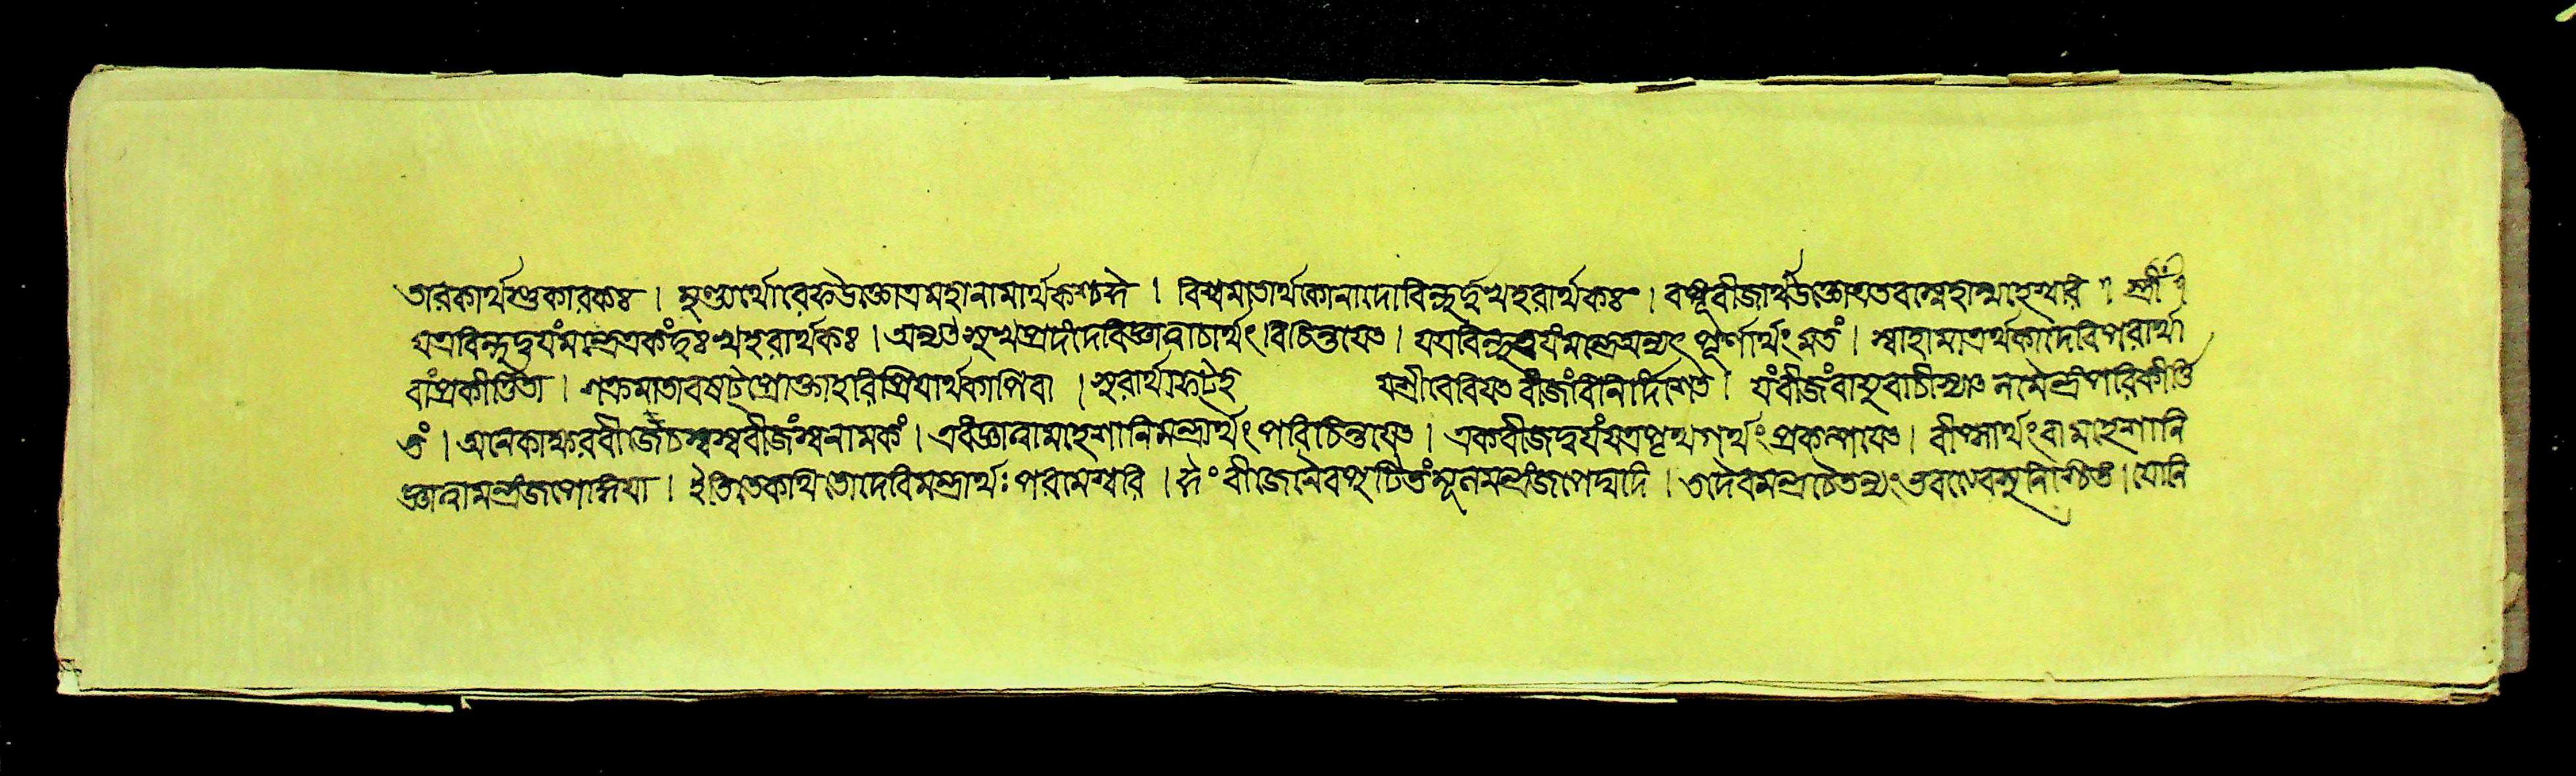 তারকার্থশুকারকঃ । সুধার্থোরেফউক্তোত্রমহানামার্থকশ্চদে । বিশ্বমাতার্থকোনাদোবিন্দুর্দুখহরার্থকঃ । বধূবীজার্থউক্তোযতবাস্মহান্মাহেশ্বরি । স্ত্রীঁ ।
যত্রবিন্দুদ্বযংমন্ত্রেএকংদুঃখহরার্থকঃ । অন্যৎসুখপ্রদংদেবিজ্ঞাত্বাচার্থং বিচিন্তযেৎ । যত্রবিন্দুত্রযংমন্ত্রেঅন্যৎ পূর্ণার্থং মতং । স্বাহামাত্রর্থকাদেবিপরার্থা
বাংপ্রকীর্ত্তিতা । শক্রমাতাবষট্প্রোক্তাহরিপ্রিযার্থকাপিবা । সুরার্থাফট্ যশ্রীবেবিযেৎ বীজাংবিনির্দিশেৎ । যংবীজংবাযুবাচীস্যাৎ নামেন্দ্রংপরিকীর্ত্তি
তং । অনেকাক্ষরবীজেচস্বস্ববীজংস্বনামকং । এবংজ্ঞাত্বামহেশানিমন্ত্রার্থং পরিচিন্তযেৎ । একবীজদ্বযংযত্রপৃথগর্থং প্রকল্পযেৎ । বীপ্সার্থংবামহেশানি
জ্ঞাত্বামন্ত্রংজপেদ্ধিযা । ইতিতেকথিতোদেবিমন্ত্রার্থঃ পরমেশ্বরি । হ্রীং বীজেনৈবপুটিতংমূলমন্ত্রংজপেদ্যদি । তদেবমন্ত্রচৈতন্যং ভবত্যেবসুনিশ্চিতং । যোনি